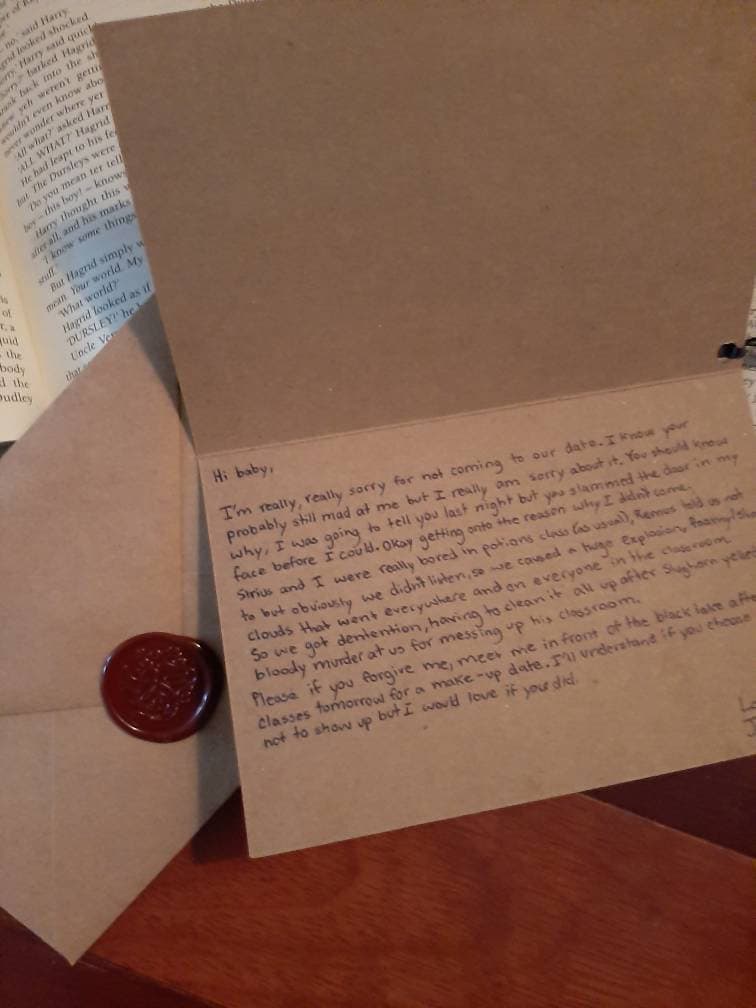 er of R
no,' said Harry.
grid looked shocked
orry,' Harry said quick
orry?' barked Hagrid
ack back into the sh
new yeh weren't getti
wouldn't even know abo
never wonder where yer
'All what?' asked Harr
'ALL WHAT?' Hagrid
He had leapt to his fe
hut. The Dursleys were
'Do you mean ter tell
boy – this boy! – knows
Harry thought this w
after all, and his marks
'I know some things
stuff.'
But Hagrid simply w
mean. Your world. My
'What world?'
Hagrid looked as if
'DURSLEY!' he b
Uncle Ver
that
ls
of
r, a
quid
s the
body
d the
Dudley
Hi baby,
I'm really, really sorry for not coming to our date. I know your
probably still mad at me but I really am sorry about it. You should know
why, I was going to tell you last night but you slammed the door in my
face before I could. Okay getting onto the reason why I didn't come.
Sirius and I were really bored in potions class (as usual), Remus told us not
to but obviously we didn't listen, so we caused a huge explosion,
clouds that went everywhere and on everyone in the classroom
So we got dentention, having to clean it all up after Slughorn yelled
bloody murder at us for messing up his classroom.
Please if you forgive me, meet me in front of the black lake afte
classes tomorrow for a make-up date. I'll understand if you choose
not to show up but I would love if you did.
Lo
J